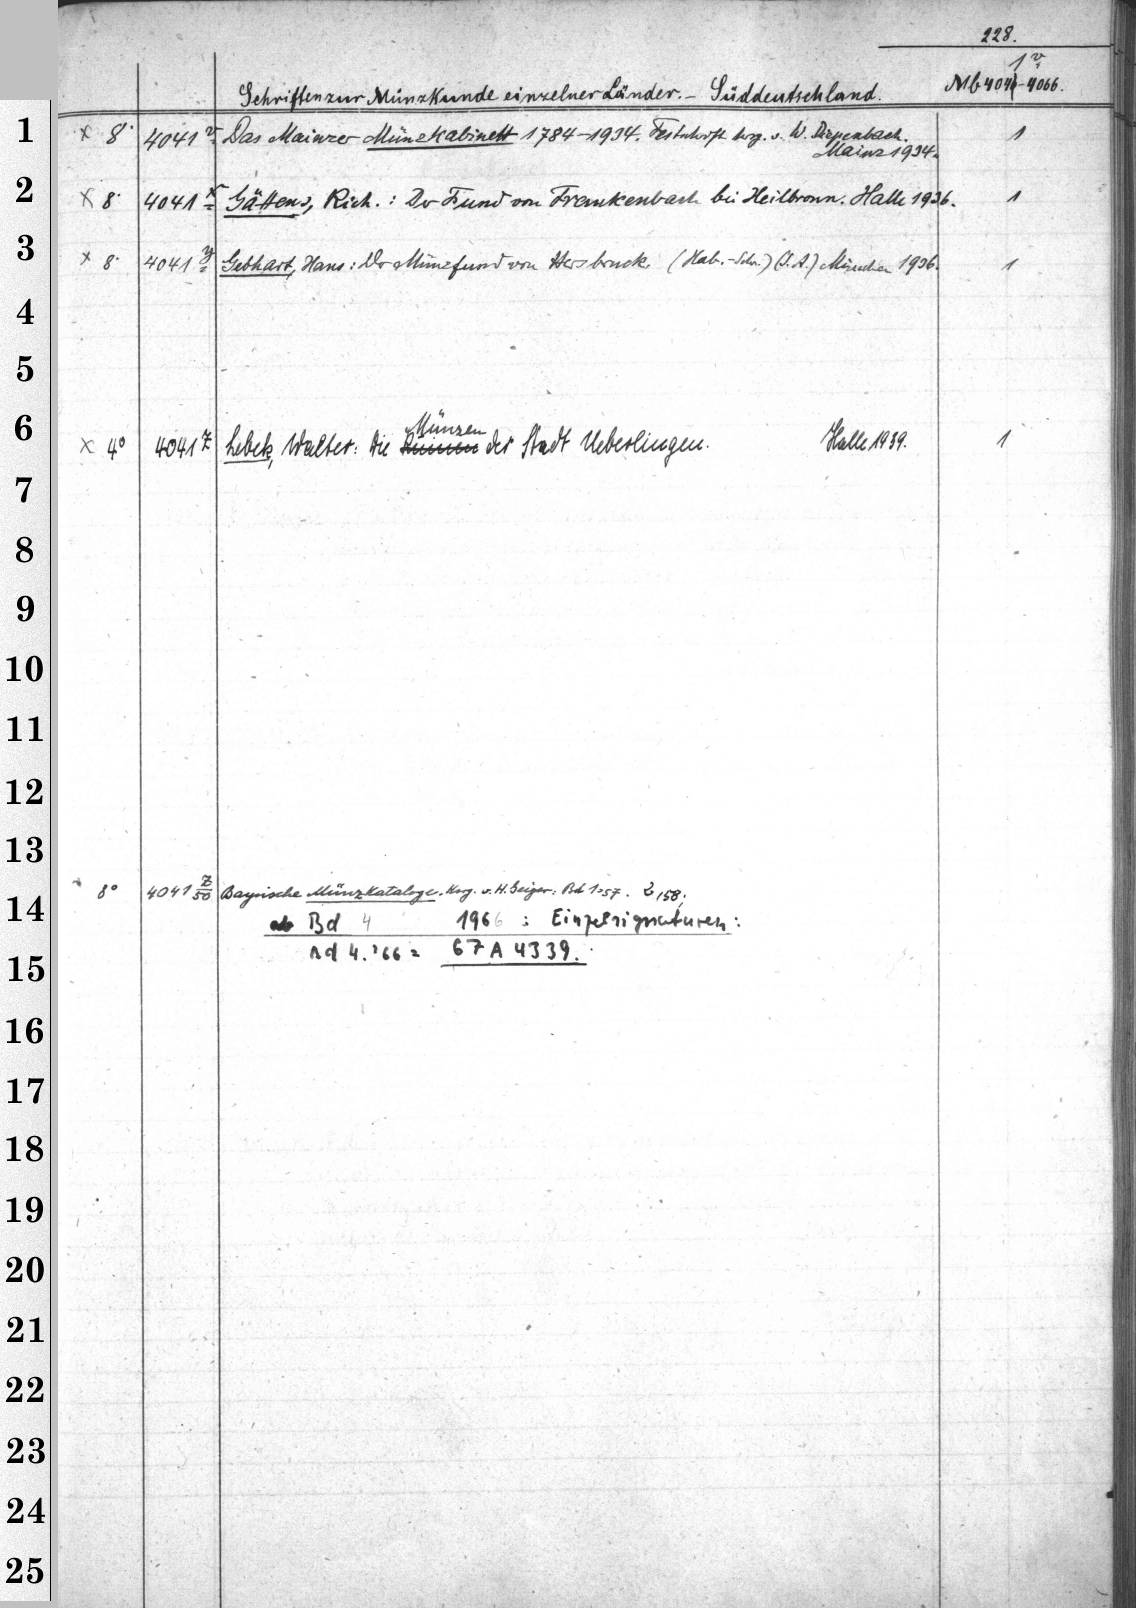 228.
1 v
Schriften zur Münzkunde einzelner Länder. — Süddeutschland. Mb 4041-4066.
1 x 8° 4041 v Das Mainzer Münzkabinett 1784-1934. Festschrift hrg. v. W. Diepenbach. 1
Mainz 1934.
2 x 8° 4041 x Gättens, Rich.: Der Fund von Frankenbach bei Heilbronn. Halle 1936. 1
3 x 8° 4041 y Gebhart, Hans: Der Münzfund von Hersbruck. (Hab.-Schr.) (S.A.) München 1936. 1
4
5
Münzen
6 x 4° 4041 z Lebek, Walter: Die der Stadt Ueberlingen. Halle 1939. 1
7
8
9
10
11
12
13
8° 4041 z/50 Bayrische Münzkataloge. Hrg. v. H. Geiger. Bd 1.'57. 2,'58;
14 ab Bd 4 1966 : Einzelsignaturen:
15 Bd 4.'66 = 67 A 4339.
16
17
18
19
20
21
22
23
24
25